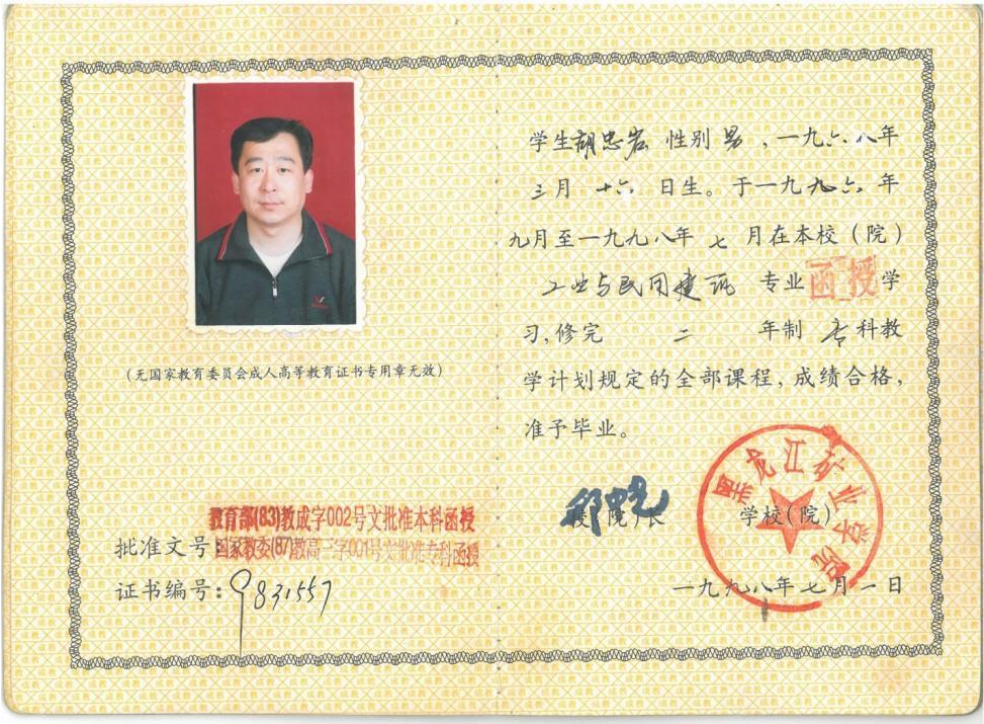 (无国家教育委员会成人高等教育证书专用章无效)
教育部(83)教成字002号文批准本科函授
批准文号:国家教委(87)教高三字001号文批准专科函授
证书编号:9831557
学生胡忠岩 性别男,一九六八年
三月 十六 日生。于一九九六年
九月至一九九八年 七 月在本校(院)
工业与民用建筑 专业 函授学
习,修完 二 年制 专科教
学计划规定的全部课程,成绩合格,
准予毕业。
校(院)长 学校(院)
黑龙江矿业学院
一九九八年七月一日